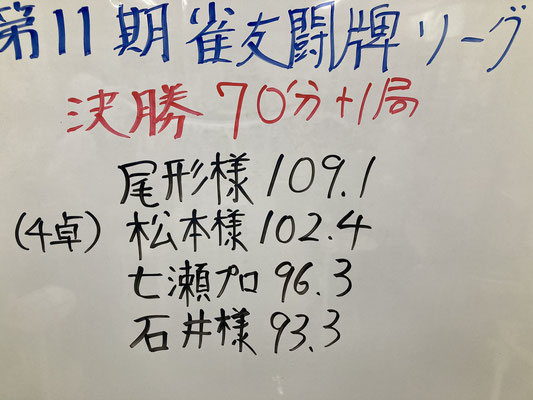 第11期雀友闘牌リーグ
決勝 70分+1局
尾形様 109.1
(4卓) 松本様 102.4
七瀬プロ 96.3
石井様 93.3